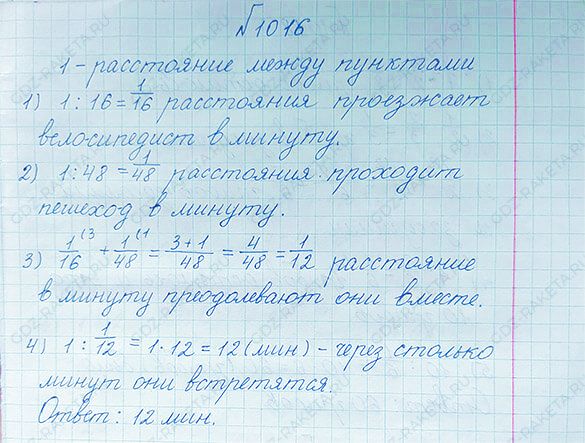 №1016
1 - расстояние между пунктами
1) 1 : 16 = 1/16 расстояния проезжает
велосипедист в минуту.
2) 1 : 48 = 1/48 расстояния проходит
пешеход в минуту.
3) 1/16 (3 + 1/48 (1 = 3+1/48 = 4/48 = 1/12 расстояние
в минуту преодолевают они вместе.
4) 1 : 1/12 = 1 · 12 = 12 (мин) - через столько
минут они встретятся.
Ответ: 12 мин.
GDZ-RAKETA.RU